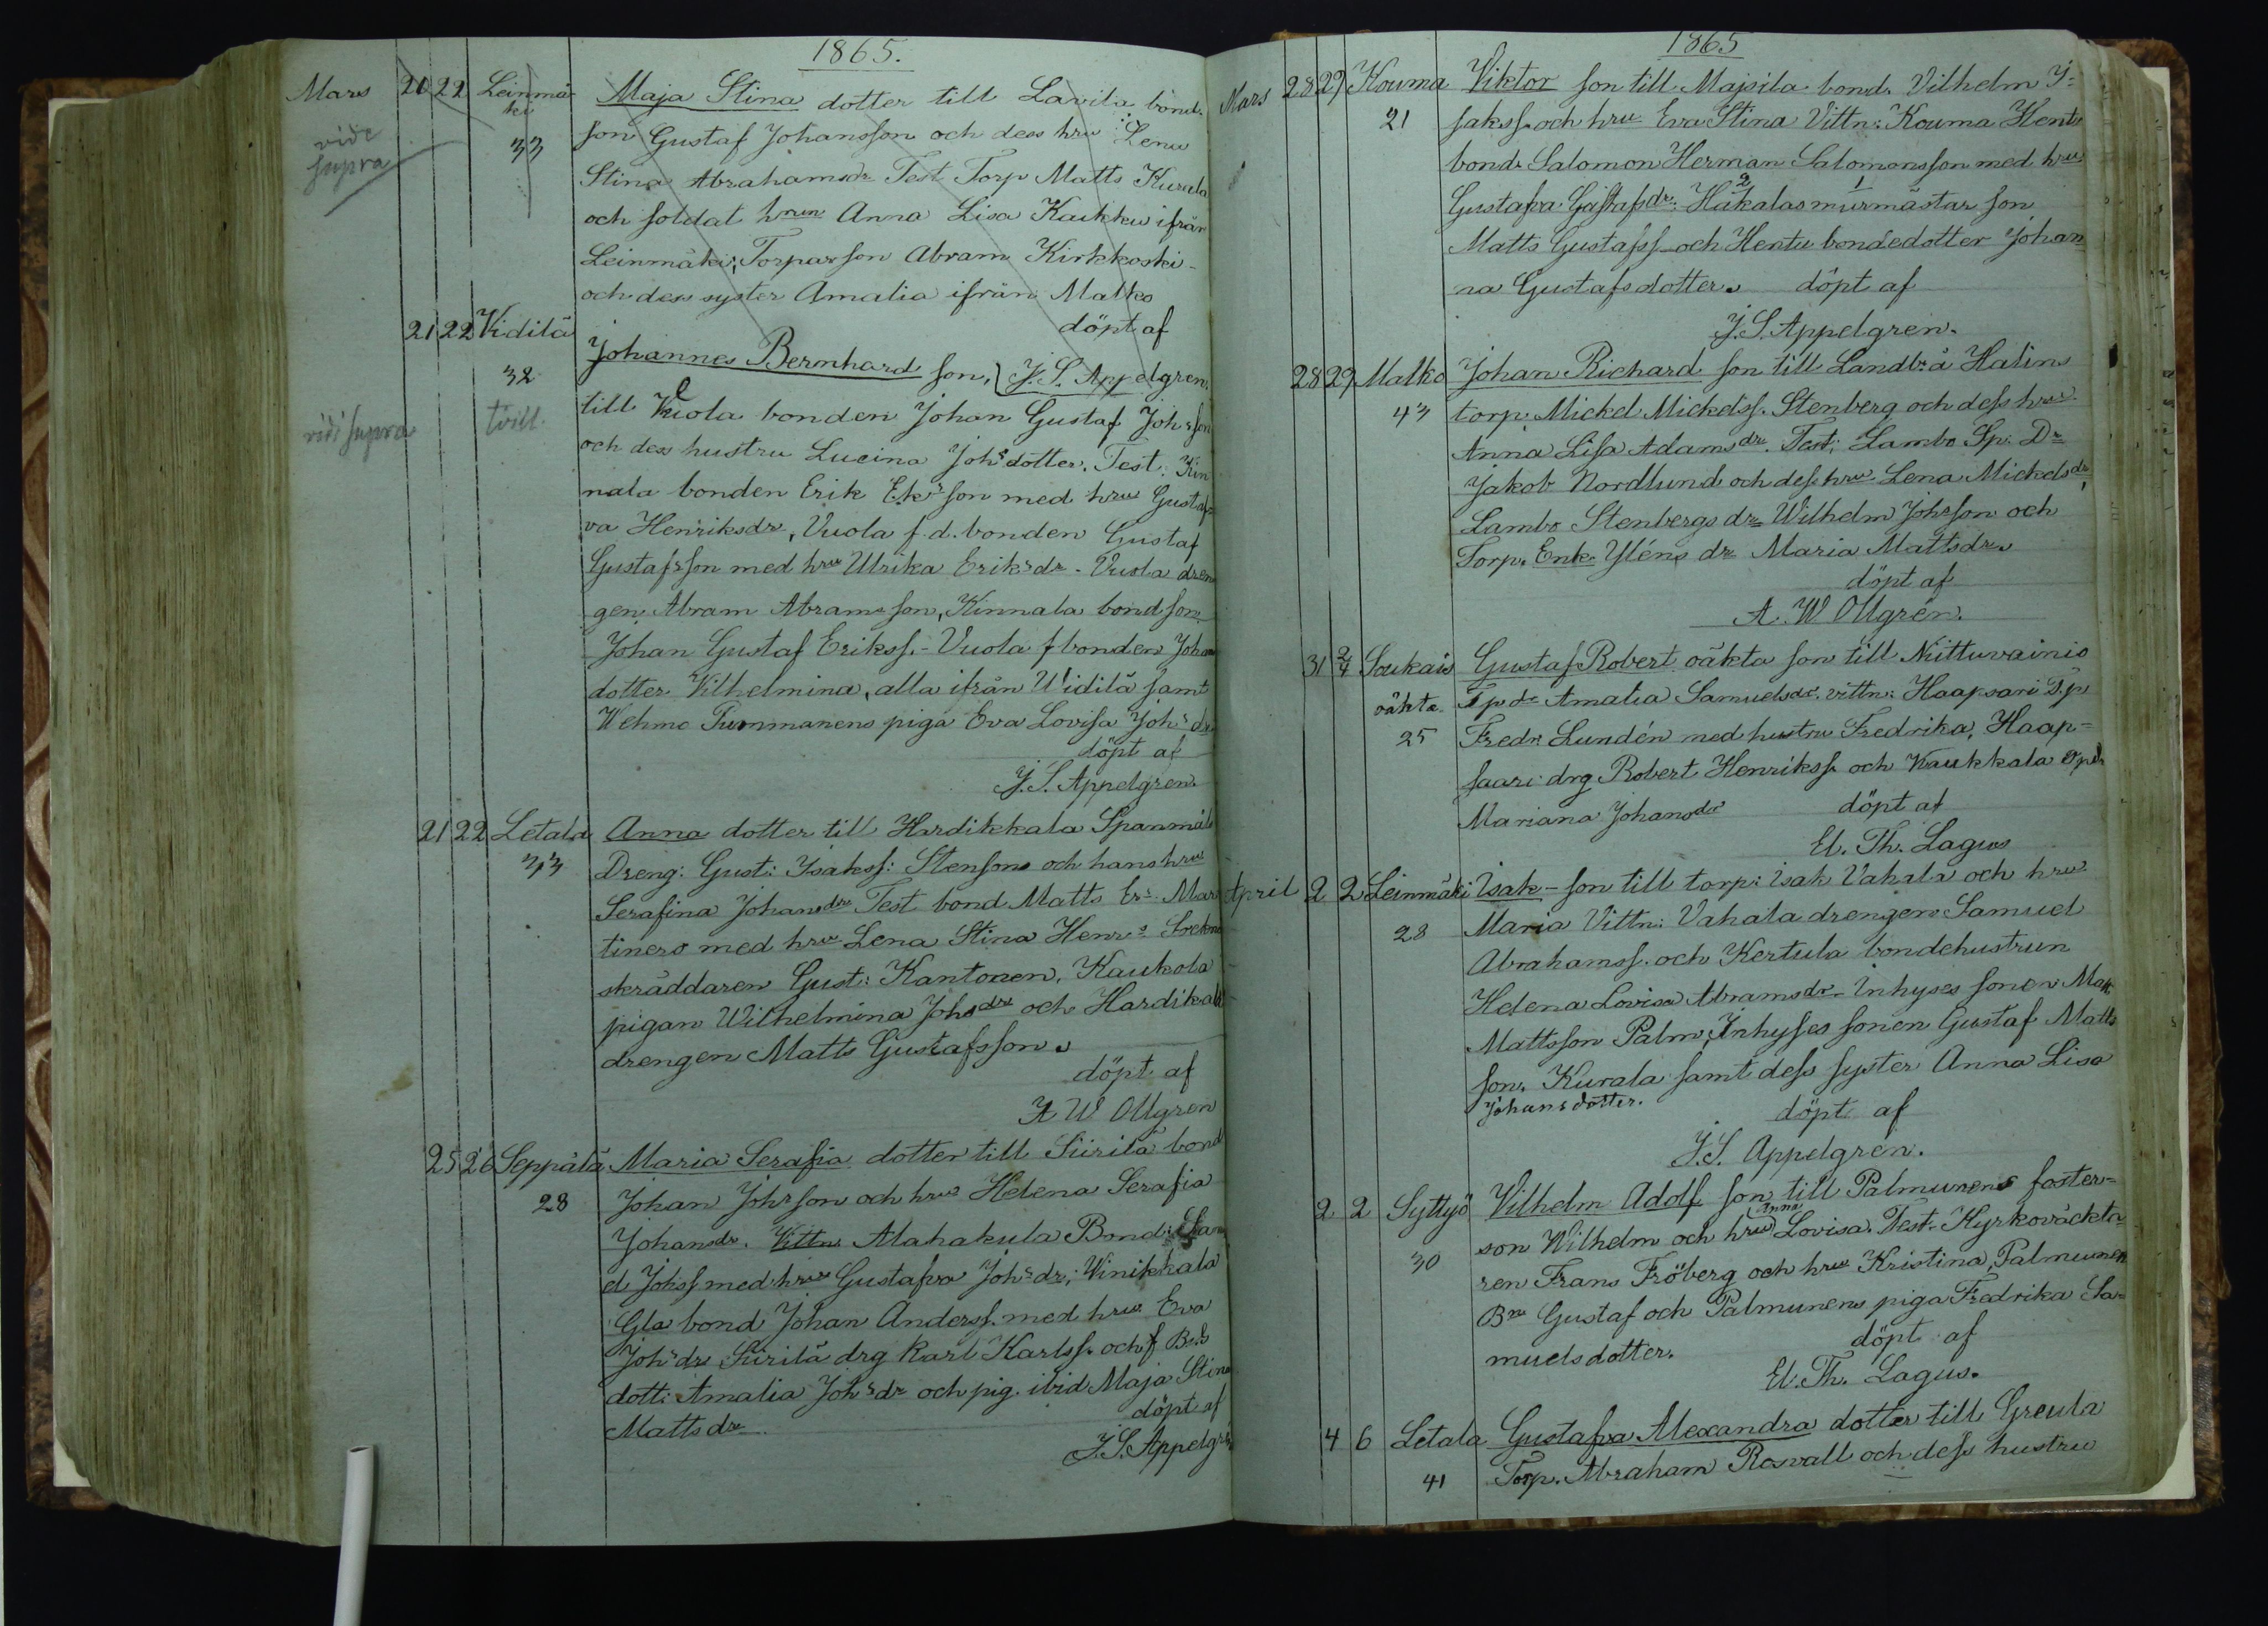 1865.
Mars 21 22 Leinmä- Maja Stina dotter till Lavila bond.
ki
vide supra 33 son Gustaf Johansson och dess hru Lena
Stina Abrahamsdr Test Torp Matts Kurula
och soldat hrun Anna Lisa Kaukku ifrån
Leinmäki, Torparson Abram Kirkkoski
och dess syster Amalia ifrån Malko
döpt af
J. S. Appelgren.
21 22 Vidilä Johannes Bernhard son,
32 till Vuola bonden Johan Gustaf Johsson
vide supra tvill. och dess hustru Lucina Johsdotter. Test. Kin
nala bonden Erik Ekson med hru Gustaf-
va Henriksdr, Vuola f.d. bonden Gustaf
Gustafsson med hru Ulrika Eriksdr. Vuola dren
gen Abram Abramsson, Kinnala bondson
Johan Gustaf Erikss. Vuola f bonden Joha
dotter Vilhelmina, alla ifrån Vidilä samt
Wehmo Pummanens piga Eva Lovisa Johsdr
döpt af
J. S. Appelgren.
21 22 Letala Anna dotter till Hardikkala Spanmåls
33 Dreng: Gust: Isakss: Stensons och hans hru
Serafina Johansdr Test bond Matts Er: Mar
tinero med hru Lena Stina Henrs Sockne
skräddaren Gust: Kantonen, Kaukola
pigan Wilhelmina Johsdr och Hardikal
drengen Matts Gustafsson.
döpt af
A W Ollgren
25 26 Seppälä Maria Serafia dotter till Siirilä bond
28 Johan Johsson och hru Helena Serafia
Johansdr. Vittn. Alahakula Bond: Sam
el Johss med hru Gustafva Johsdr; Vinikkala
Gla bond Johan Anderss. med hru Eva
Johsdr Siirilä drg Karl Karlss. och f Bds
dott: Amalia Johsdr och pig. ibid Maja Stina
Mattsdr döpt af
J. S. Appelgre
1865
Mars 28 29 Kouma Viktor son till Majsila bond. Vilhelm I-
21 sakss. och hru Eva Stina Vittn: Kouma Hentu
bond. Salomon Herman Salomonsson med hru
2 1
Gustafva Gustafsdr. Häkalas murmästar son
Matts Gustafss och Hentu bondedotter Johan
na Gustafsdotter. döpt af
J. S. Appelgren.
28 29 Malko Johan Richard son till Landbrå Halins
43 torp. Mickel Mickelss. Stenberg och dess hru
Anna Lisa Adamsdr. Test; Lambo Sp. Dr
Jakob Nordlund och dess hru Lena Mickelsdr,
Lambo Stenbergs dr Wilhelm Johsson och
Torp. Enk. Yléns dr Maria Mattsdr.
döpt af
A. W Ollgrén.
31 2/4 Soukais Gustaf Robert oäkta son till Niittuvainio
oäkta Tp dr Amalia Samuelsdr. vittn: Haapsari Tp
25 Fredr. Lundén med hustru Fredrika, Haap-
saari drg Robert Henrikss. och Kaukkala
Mariana Johansdr döpt af
El. Th. Lagus
April 2 2 Leinmäki Isak - son till torp: Isak Vahala och hru
28 Maria Vittn: Vahala drengen Samuel
Abrahamss. och Kertula bondehustrun
Helena Lovisa Abramsdr. Inhyses sonen Mat
Mattsson Palm, Inhyses sonen Gustaf Matts
son. Kurala samt dess syster Anna Lisa
Johansdotter. döpt af
J. S. Appelgren.
2 2 Syttyö Vilhelm Adolf son till Palmunens foster-
Anna
30 son Wilhelm och hru Lovisa. Test. Kyrkoväckta
ren Frans Fröberg och hru Kristina, Palmunen
Bn Gustaf och Palmunens piga Fredrika Sa-
muelsdotter. döpt af
El. Th. Lagus.
4 6 Letala Gustafva Alexandra dotter till Greula
41 Torp. Abraham Rosvall och dess hustru